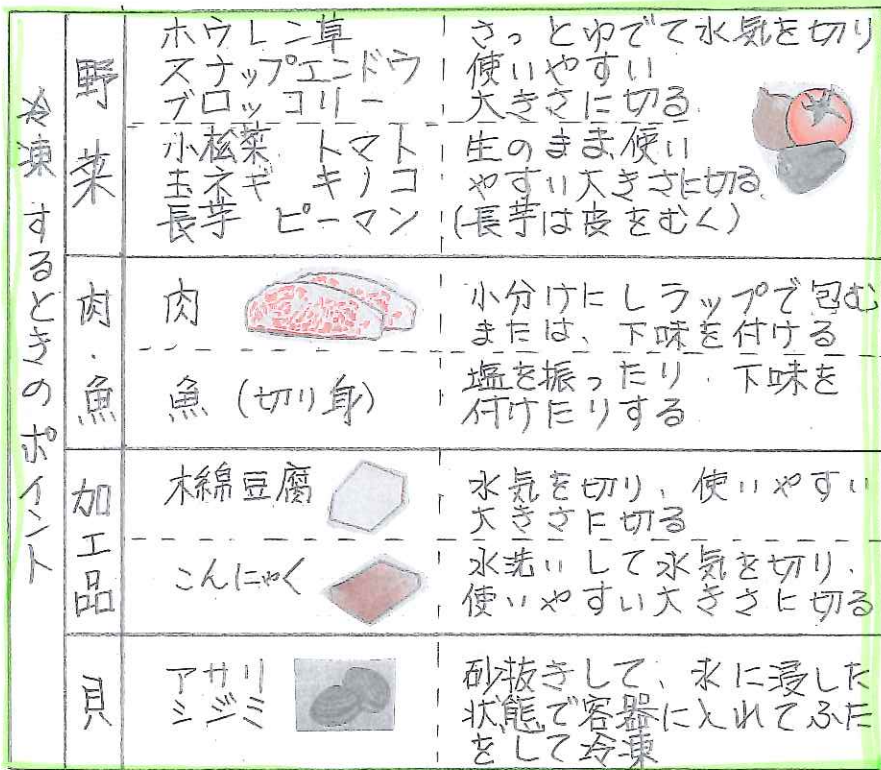 冷凍するときのポイント
野菜
ホウレン草
スナップエンドウ
ブロッコリー
さっとゆでて水気を切り
使いやすい
大きさに切る
小松菜 トマト
玉ネギ キノコ
長芋 ピーマン
生のまま、使い
やすい大きさに切る
(長芋は皮をむく)
肉・魚
肉
小分けにしラップで包む
または、下味を付ける
魚(切り身)
塩を振ったり、下味を
付けたりする
加工品
木綿豆腐
水気を切り、使いやすい
大きさに切る
こんにゃく
水洗いして水気を切り、
使いやすい大きさに切る
貝
アサリ
シジミ
砂抜きして、水に浸した
状態で容器に入れてふた
をして冷凍